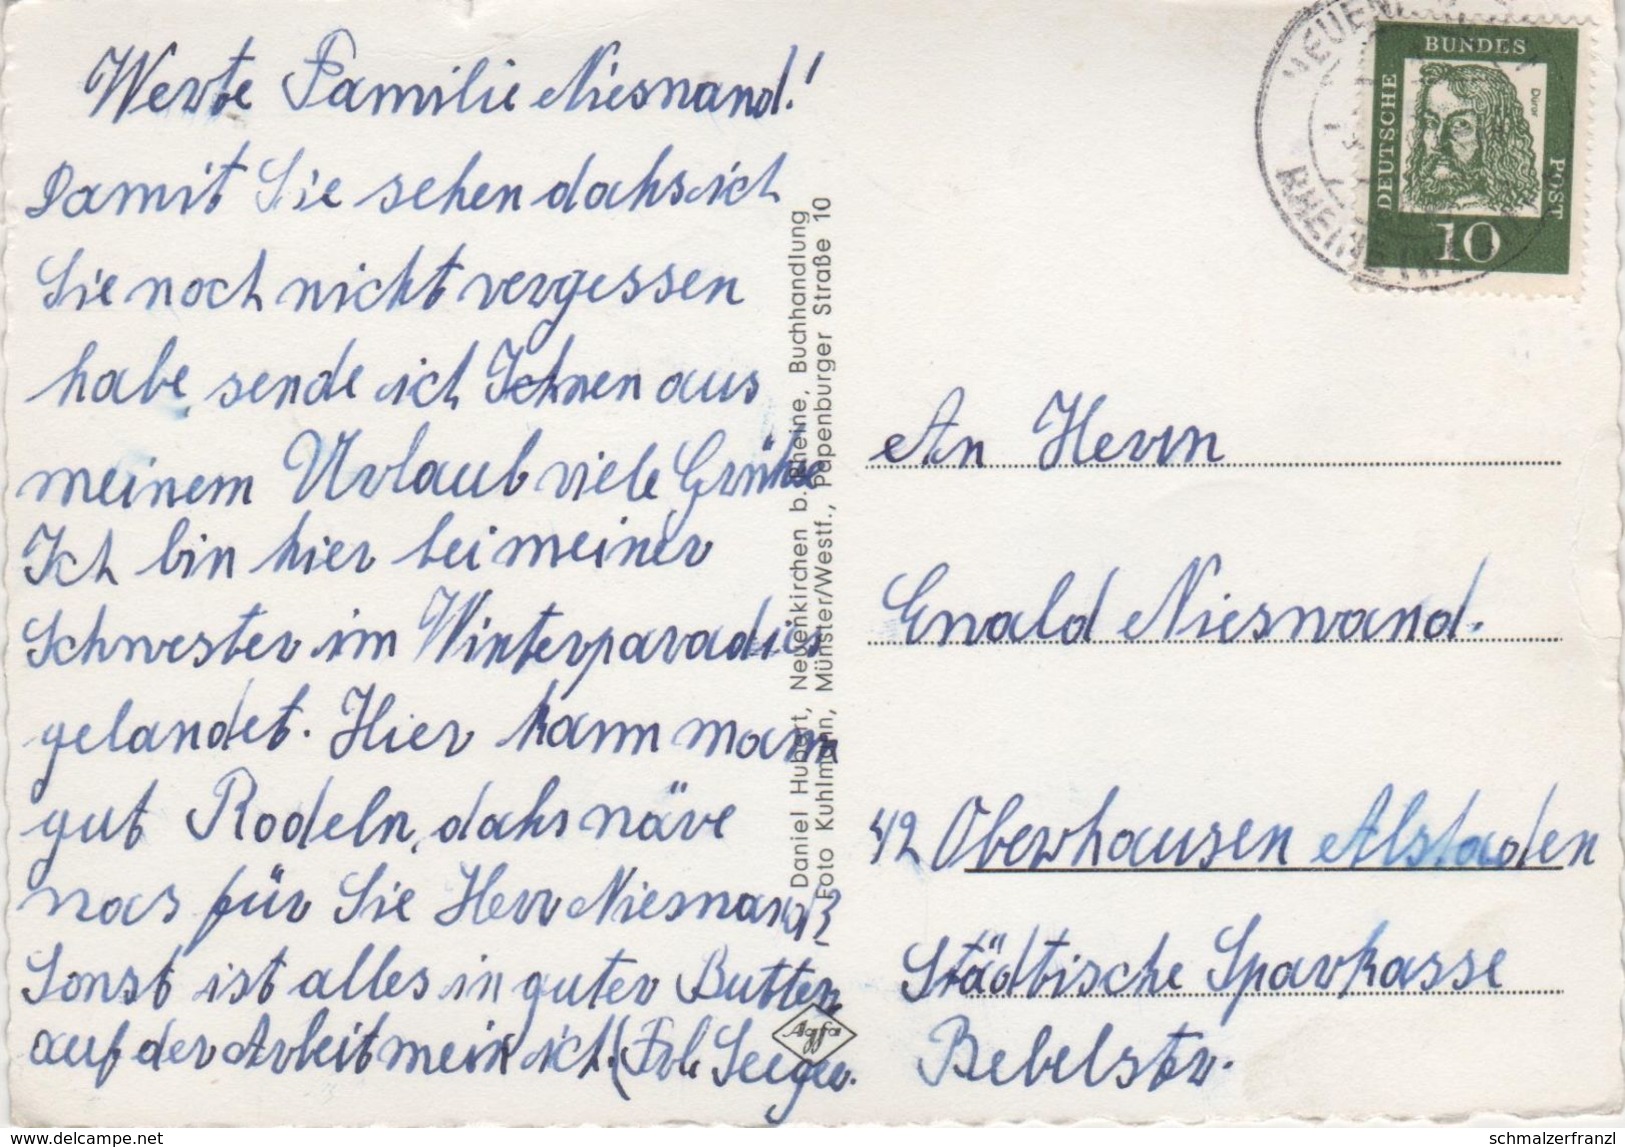 Werte Familie Niesnand!
Damit Sie sehen dahs ich
Sie noch nicht vergessen
habe, sende ich Ichnen aus
meinem Urlaub viele Grühse
Ich bin hier bei meiner
Schwester im Winterparadies
gelandet. Hier kann mann
gut Rodeln, dahs näre
nas für Sie Herr Niesnand?
Sonst ist alles in guter Butter
auf der Arbeit mein ich. (Frl. Seeger.
Daniel Hubert, Neuenkirchen b. Rheine, Buchhandlung
Foto Kuhlmann, Münster/Westf., Papenburger Straße 10
Agfa
DEUTSCHE
BUNDES
POST
Dürer
10
An Herrn
Enald Niesnand.
42 Oberhausen Alstaden
Städtische Sparkasse
Bebelstr.
www.delcampe.net
schmalzerfranzl